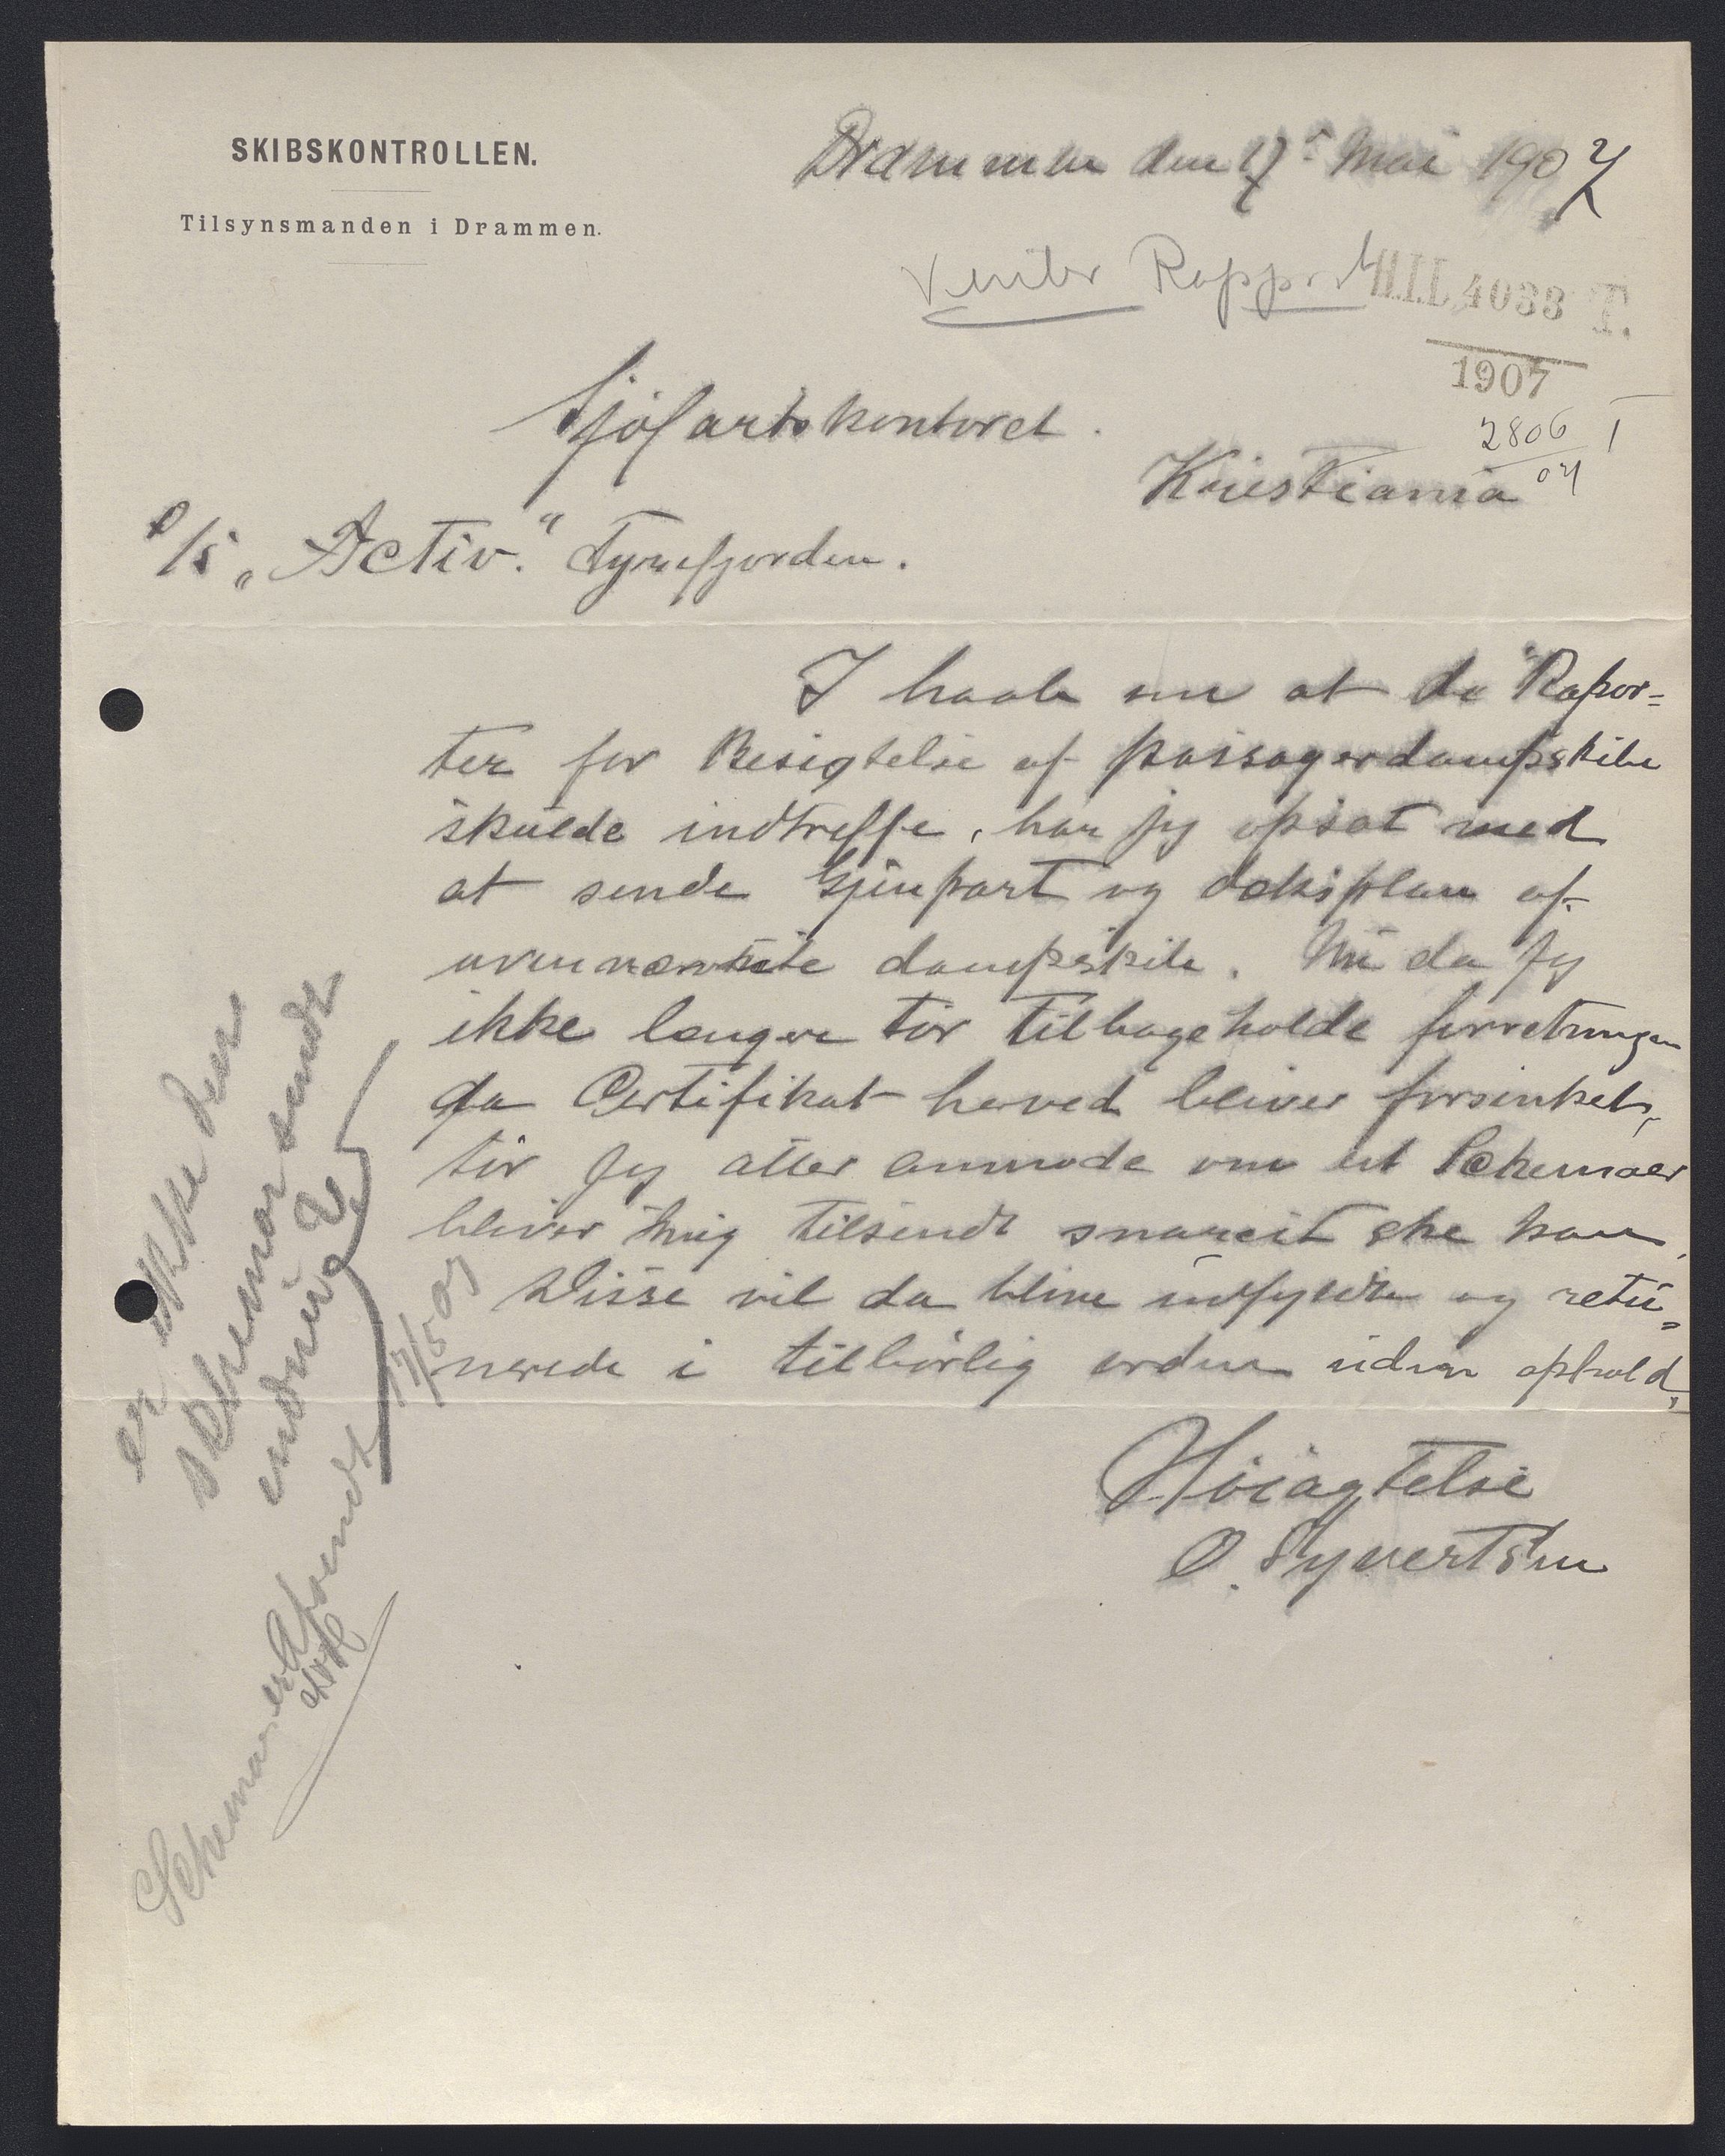 SKIBSKONTROLLEN.
Tilsynsmanden i Drammen.
Drammen den 17 Mai 1907
Venter Rapport
H.I.L 4033 T.
1907
2806 I
07
Sjøfartskontoret.
Kristiania
D/S „Activ." Tyrifjorden.
I haab om at de Rapor=
ter for Besigtelse af passagerdampskibe
skulde indtreffe, har jeg opsat med
at sende Gjenpart og doksplan af
ovennævnte dampskib. Nu da Jeg
ikke længere tør tilbageholde forretningen
da Certifikat herved bliver forsinket,
tør Jeg atter anmode om at Schemaer
bliver mig tilsendt snarest ske kan.
Disse vil da blive udfyldte og retu=
nerede i tilbørlig orden uden ophold,
Høiagtelse
O. Syvertsen
er ikke den
skemaer sendt
endnu?
Schemaer er afsendt 17/5 07